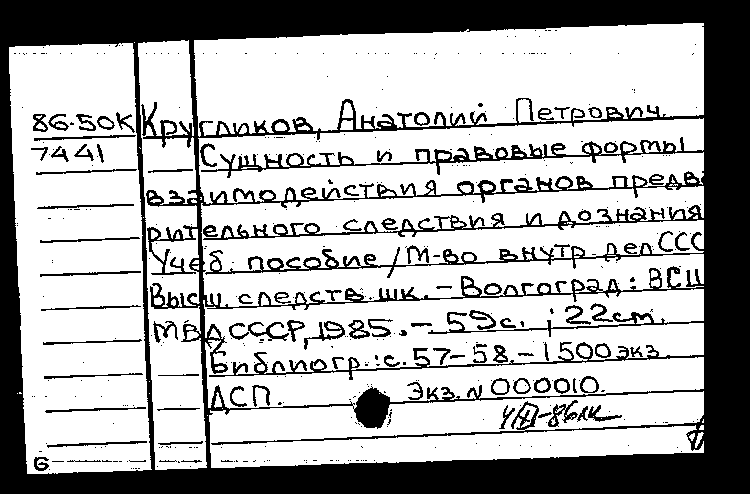 86-50К Кругликов, Анатолий Петрович.
7441 Сущность и правовые формы
взаимодействия органов предва
рительного следствия и дознания
Учеб. пособие / М-во внутр. дел ССС
Высш. следств. шк. – Волгоград: ВСШ
МВД СССР, 1985. – 59с. ; 22см.
Библиогр.: с. 57–58. – 1500 экз.
ДСП. Экз. N 000010.
6